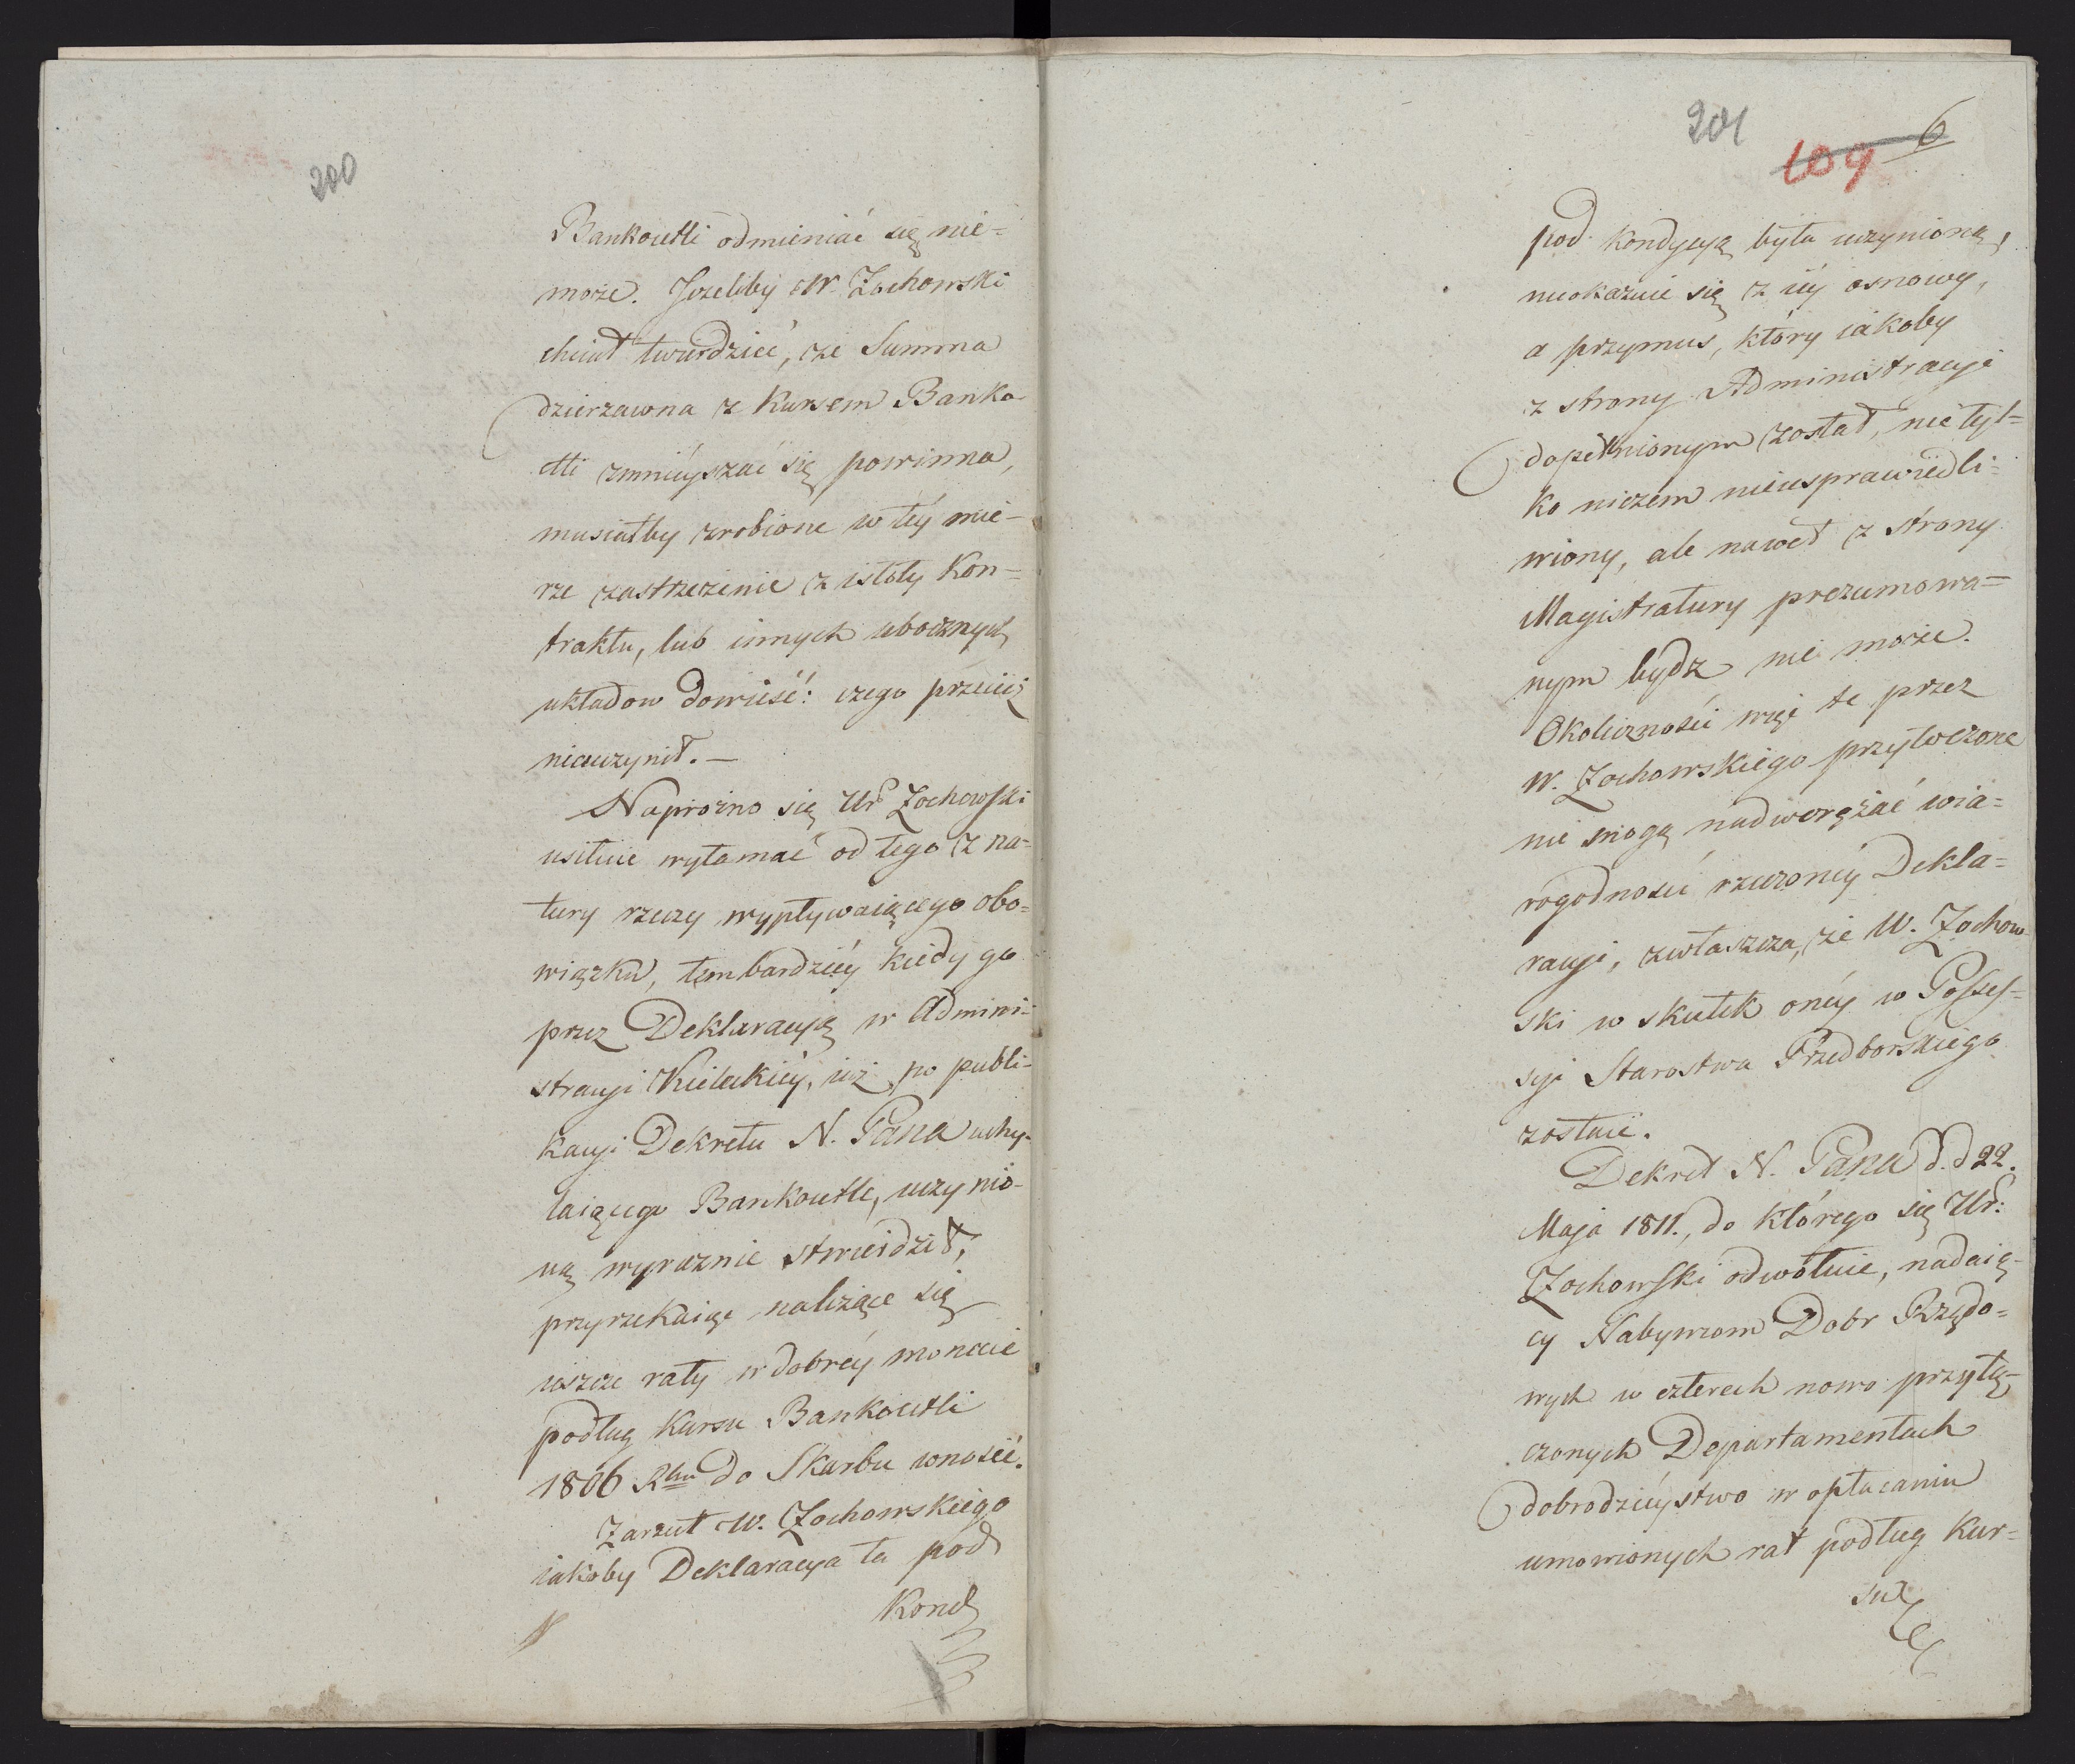 200
Bankocetli odmieniać się nie=
może. Jeżeliby W. Zochowski
chciał twierdzić, że Summa
dzierzawna z Kursem Banko-
cetli zmnieyszać się powinna,
musiałby zrobione w tey mie-
rze zastrzeżenie z istoty Kon=
traktu, lub innych ubocznych
układow dowieść: czego przecież
nieuczynił. —
Naprożno się Ur. Zochowski
usiłuie wyłamać od tego z na=
tury rzeczy wypływaiącego obo=
wiązku, tembardziey kiedy go
przez Deklaracyą w Admini=
stracyi Kieleckiey, iuż po publi=
kacyi Dekretu N. Pana uchy-
laiącego Bankocetle, uczynio-
ną wyraznie stwierdził,
przyrzekaiąc należące się
ieszcze raty w dobrey monecie
podług Kursu Bankocetli
1806 Rku do Skarbu wnosić.
Zarzut W. Zochowskiego
iakoby Deklaracya ta pod
Kond
201
109 6
pod Kondycyą była uczynioną,
nieokazuie się z iey osnowy,
a przymus, który iakoby
z strony Administracyi
dopełnionym został, nie tyl=
ko niczem nieusprawiedli=
wiony, ale nawet z strony
Magistratury prezumowa=
nym bydz nie może.
Okoliczności więc te przez
W. Zochowskiego przytoczone
nie mogą nadwerężać wia=
rogodności rzeczoney Dekla=
racyi, zwłaszcza, że W. Zochow
ski w skutek oney w Posses=
syi Starostwa Przedborskiego
zostaie.
Dekret N. Pana d. d 22.
Maja 1811., do którego się Ur.
Zochowski odwołuie, nadaią=
cy Nabywcom Dobr Rządo=
wych w czterech nowo przyłą=
czonych Departamentach
dobrodzieystwo w opłacaniu
umowionych rat podług Kur=
su